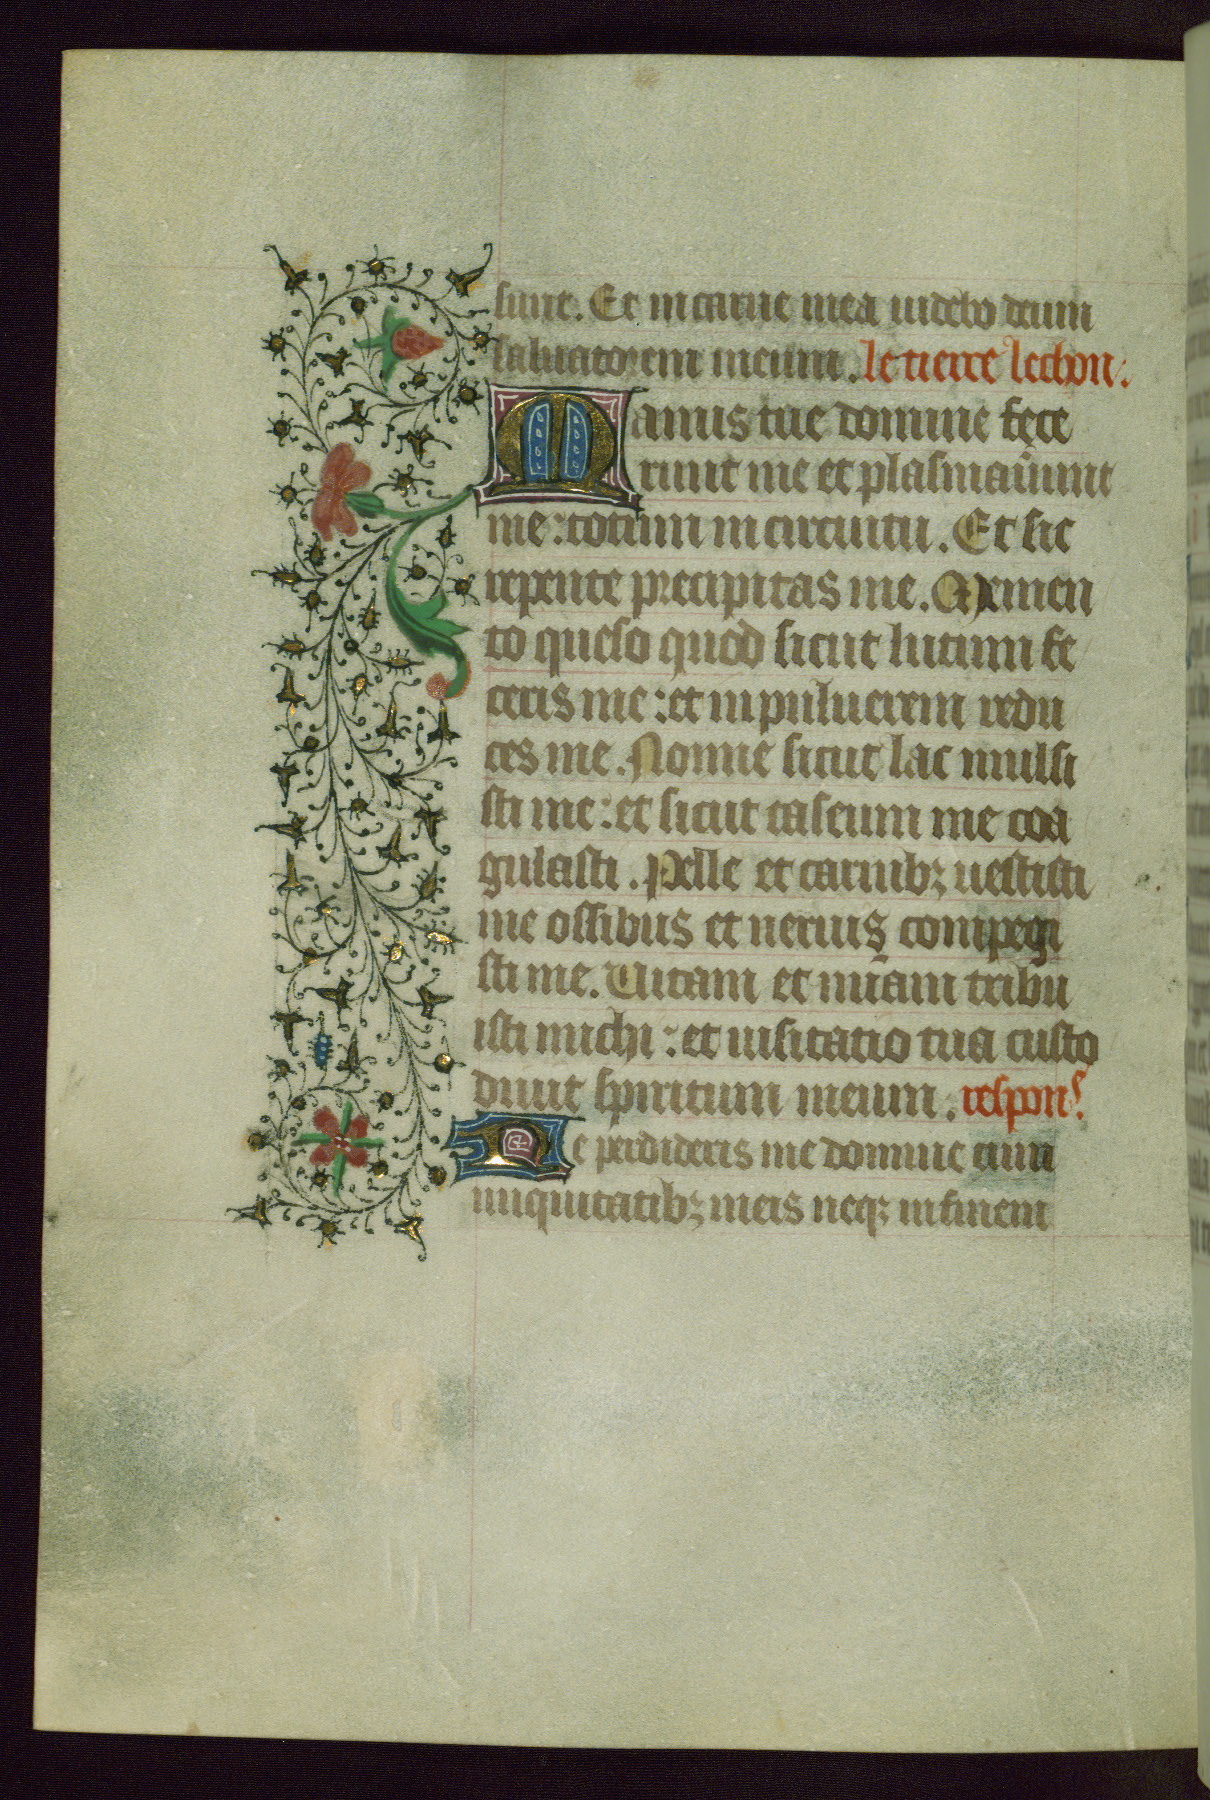 sunt. Et in carne mea uidebo deum
saluatorem meum. le tierce lechon.
Manus tue domine fece
runt me et plasmauerunt
me: totum in circuitu. Et sic
repente precipitas me. Memen
to queso quod sicut lutum fe
ceris me: et in puluerem redu
ces me. Nonne sicut lac mulsi
sti me: et sicut caseum me coa
gulasti. Pelle et carnibꝫ uestisti
me ossibus et neruis compegi
sti me. Uitam et miam tribu
isti michi: et uisitatio tua custo
diuit spiritum meum. respons.
Ne perdideris me domine cum
iniquitatibꝫ meis neqꝫ in finem